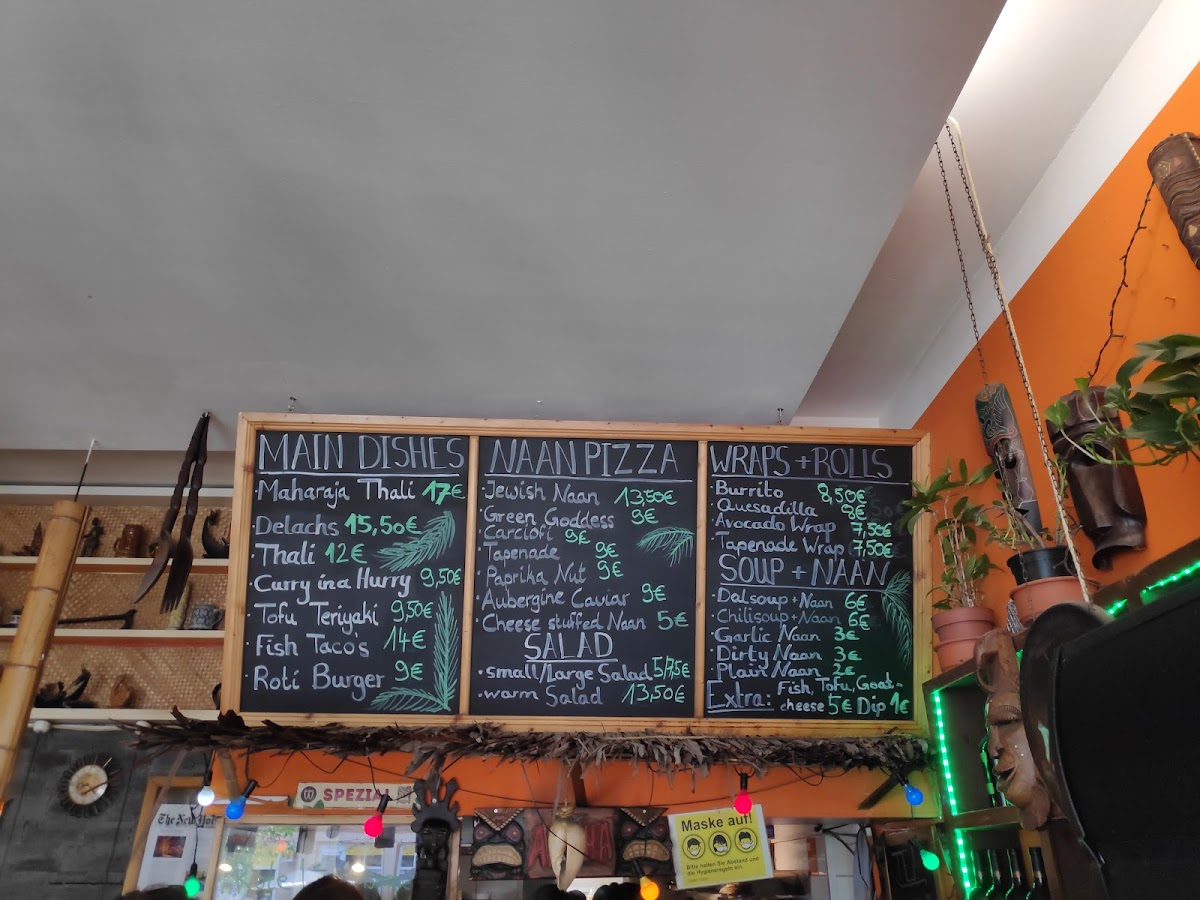 MAIN DISHES
·Maharaja Thali 17€
·Delachs 15,50€
·Thali 12€
·Curry in a Hurry 9,50€
·Tofu Teriyaki 9,50€
·Fish Taco's 14€
·Roti Burger 9€
NAAN PIZZA
·Jewish Naan 13,50€
·Green Goddess 9€
·Carciofi 9€
·Tapenade 9€
·Paprika Nut 9€
·Aubergine Caviar 9€
·Cheese stuffed Naan 5€
SALAD
·small/Large Salad 5/7,5€
·warm Salad 13,50€
WRAPS + ROLLS
·Burrito 8,50€
·Quesadilla 9€
·Avocado Wrap 7,50€
·Tapenade Wrap 7,50€
SOUP + NAAN
·Dalsoup + Naan 6€
·Chilisoup + Naan 6€
·Garlic Naan 3€
·Dirty Naan 3€
·Plain Naan 2€
Extra: Fish, Tofu, Goat-
cheese 5€ Dip 1€
SPEZIAL
The New Yor
Maske auf!
Bitte halten Sie Abstand und
die Hygieneregeln ein